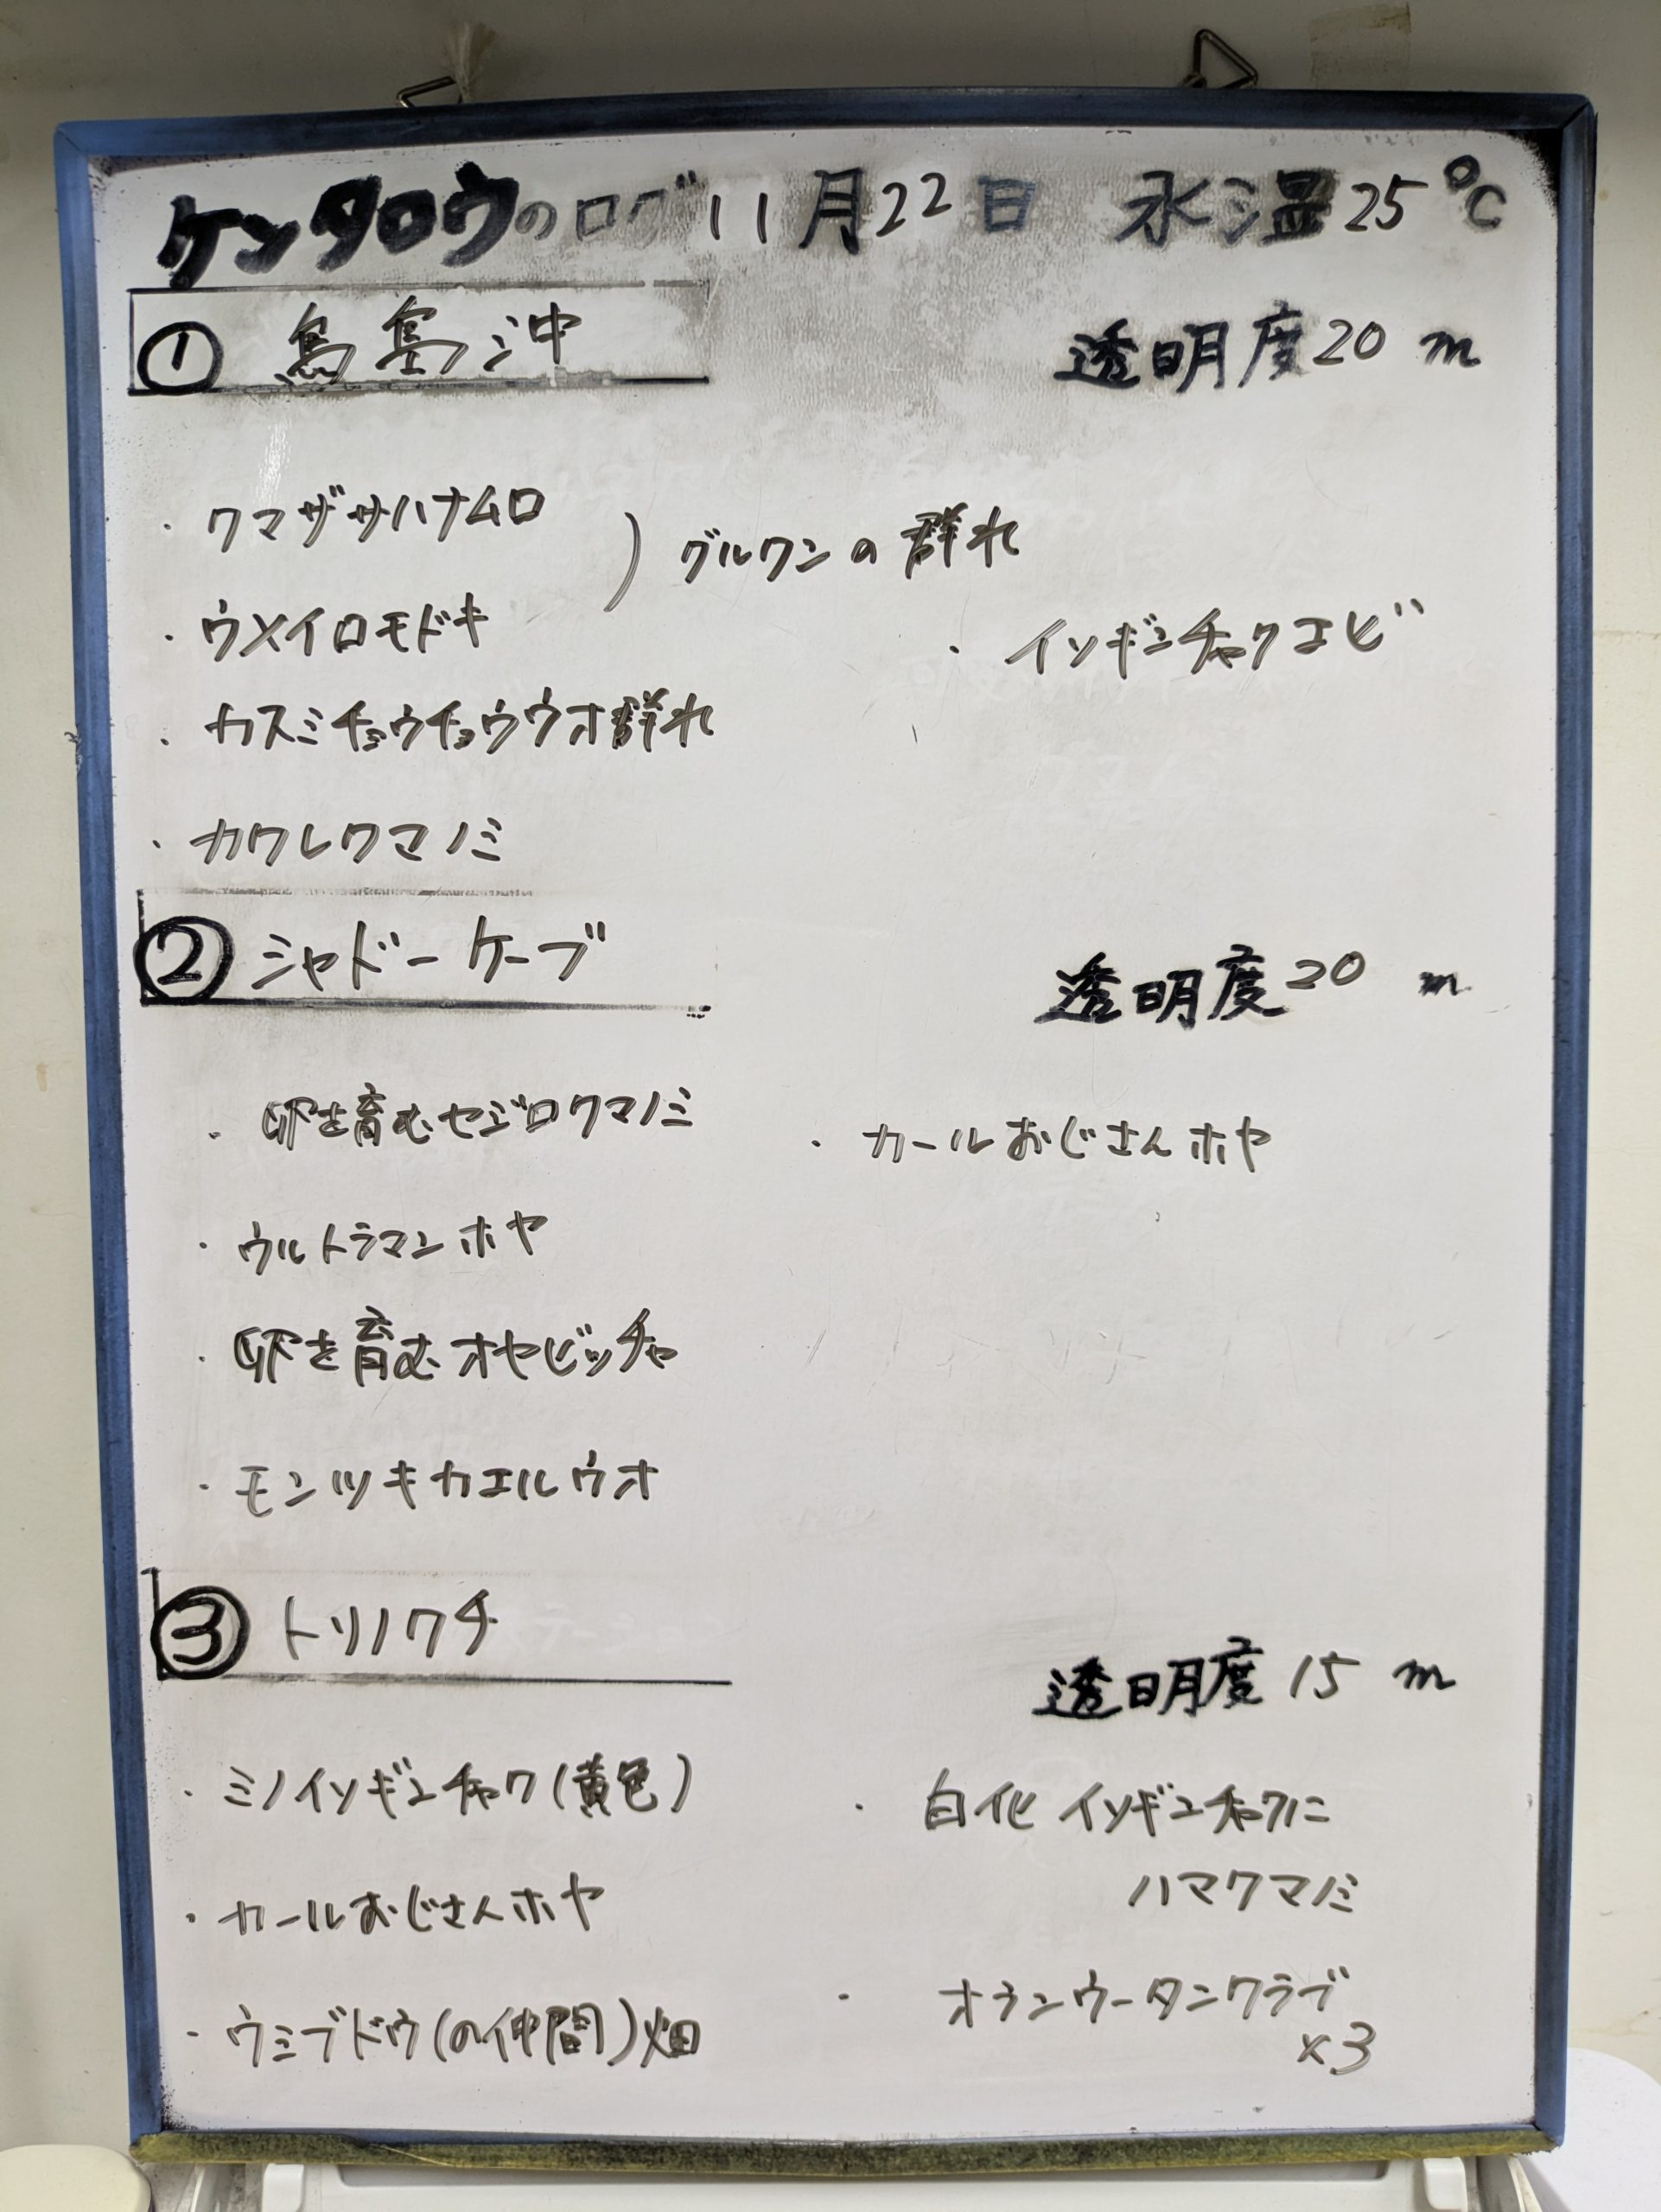 ケンタロウのログ 11月22日 水温25℃
① 鳥島沖 透明度20m
・クマザサハナムロ
) グルクンの群れ
・ウメイロモドキ
・イソギンチャクエビ
・カスミチョウチョウウオ群れ
・カクレクマノミ
② シャドーケーブ 透明度20m
・卵を育むセジロクマノミ
・カールおじさんホヤ
・ウルトラマンホヤ
・卵を育むオヤビッチャ
・モンツキカエルウオ
③ トリノクチ 透明度15m
・ミノイソギンチャク(黄色)
・白化イソギンチャクに
ハマクマノミ
・カールおじさんホヤ
・オランウータンクラブ
×3
・ウミブドウ(の仲間)畑